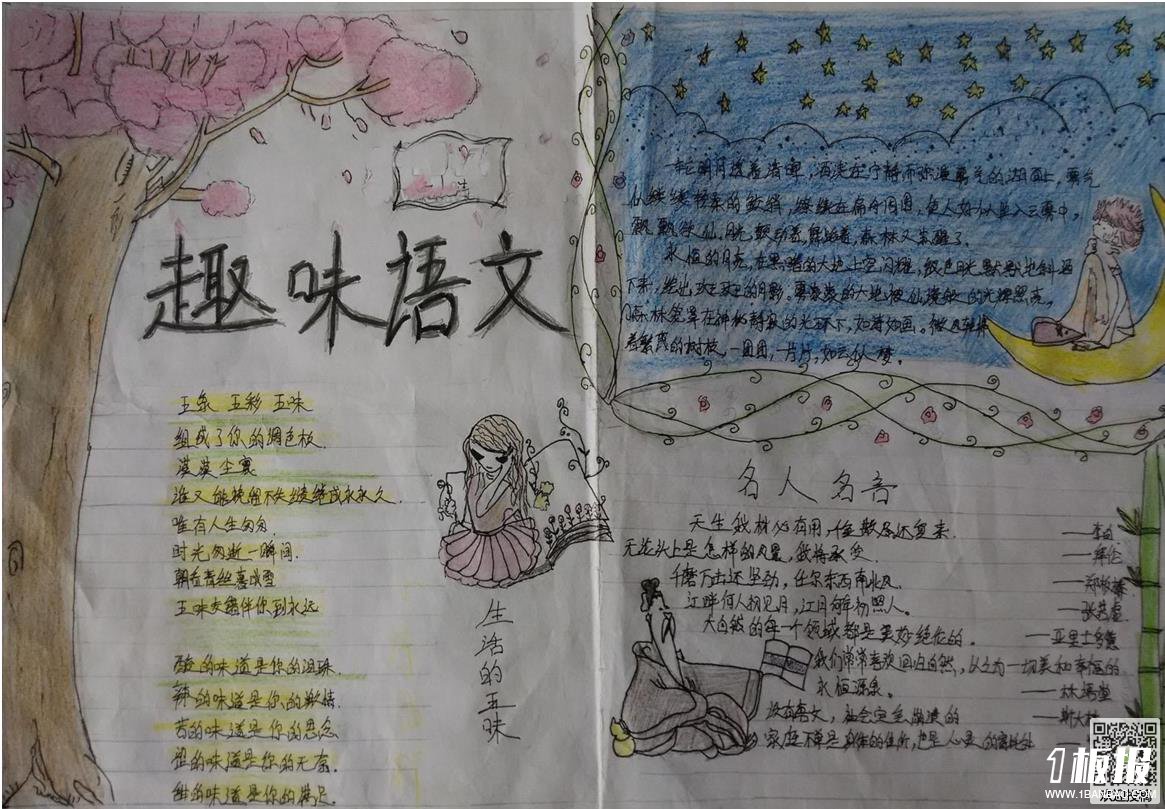 趣味语文
五条 五彩 五味
组成了你的调色板.
漠漠尘寰
谁又能挽留不失缱绻成永永久.
唯有人生匆匆
时光匆逝一瞬间.
朝看青丝暮成雪
五味交织伴你到永远
酸的味道是你的泪珠.
辣的味道是你的激情.
苦的味道是你的思念
涩的味道是你的无奈.
甜的味道是你的满足.
生活的五味
一轮明月透着清辉，洒落在宁静而弥漫雾气的湖面上，雾气
仙缕缕轻柔的
飘飘欲仙，月光
永恒的月亮，在黑暗的大地上空闪耀，银色月光默默地斜洒
下来，
森林笼罩在神秘静寂的光环下，如诗如画。微风轻拂
着繁茂的树枝，一团团，一片片，如云似梦。
名人名言
天生我材必有用，千金散尽还复来. ——李白
无论头上是怎样的风景，我将承受. ——拜伦
千磨万击还坚劲，任尔东西南北风 ——郑板桥
江畔何人初见月，江月何年初照人。 ——张若虚
大自然的每一个领域都是美妙绝伦的. ——亚里士多德
我们常常喜欢回归自然，以之为一切美和幸福的
永恒源泉。 ——林语堂
没有语文，社会定会崩溃的
家庭不单是身体的住所，也是心灵的寄托处
1板报
WWW.1BANBAO.COM
欢迎投稿